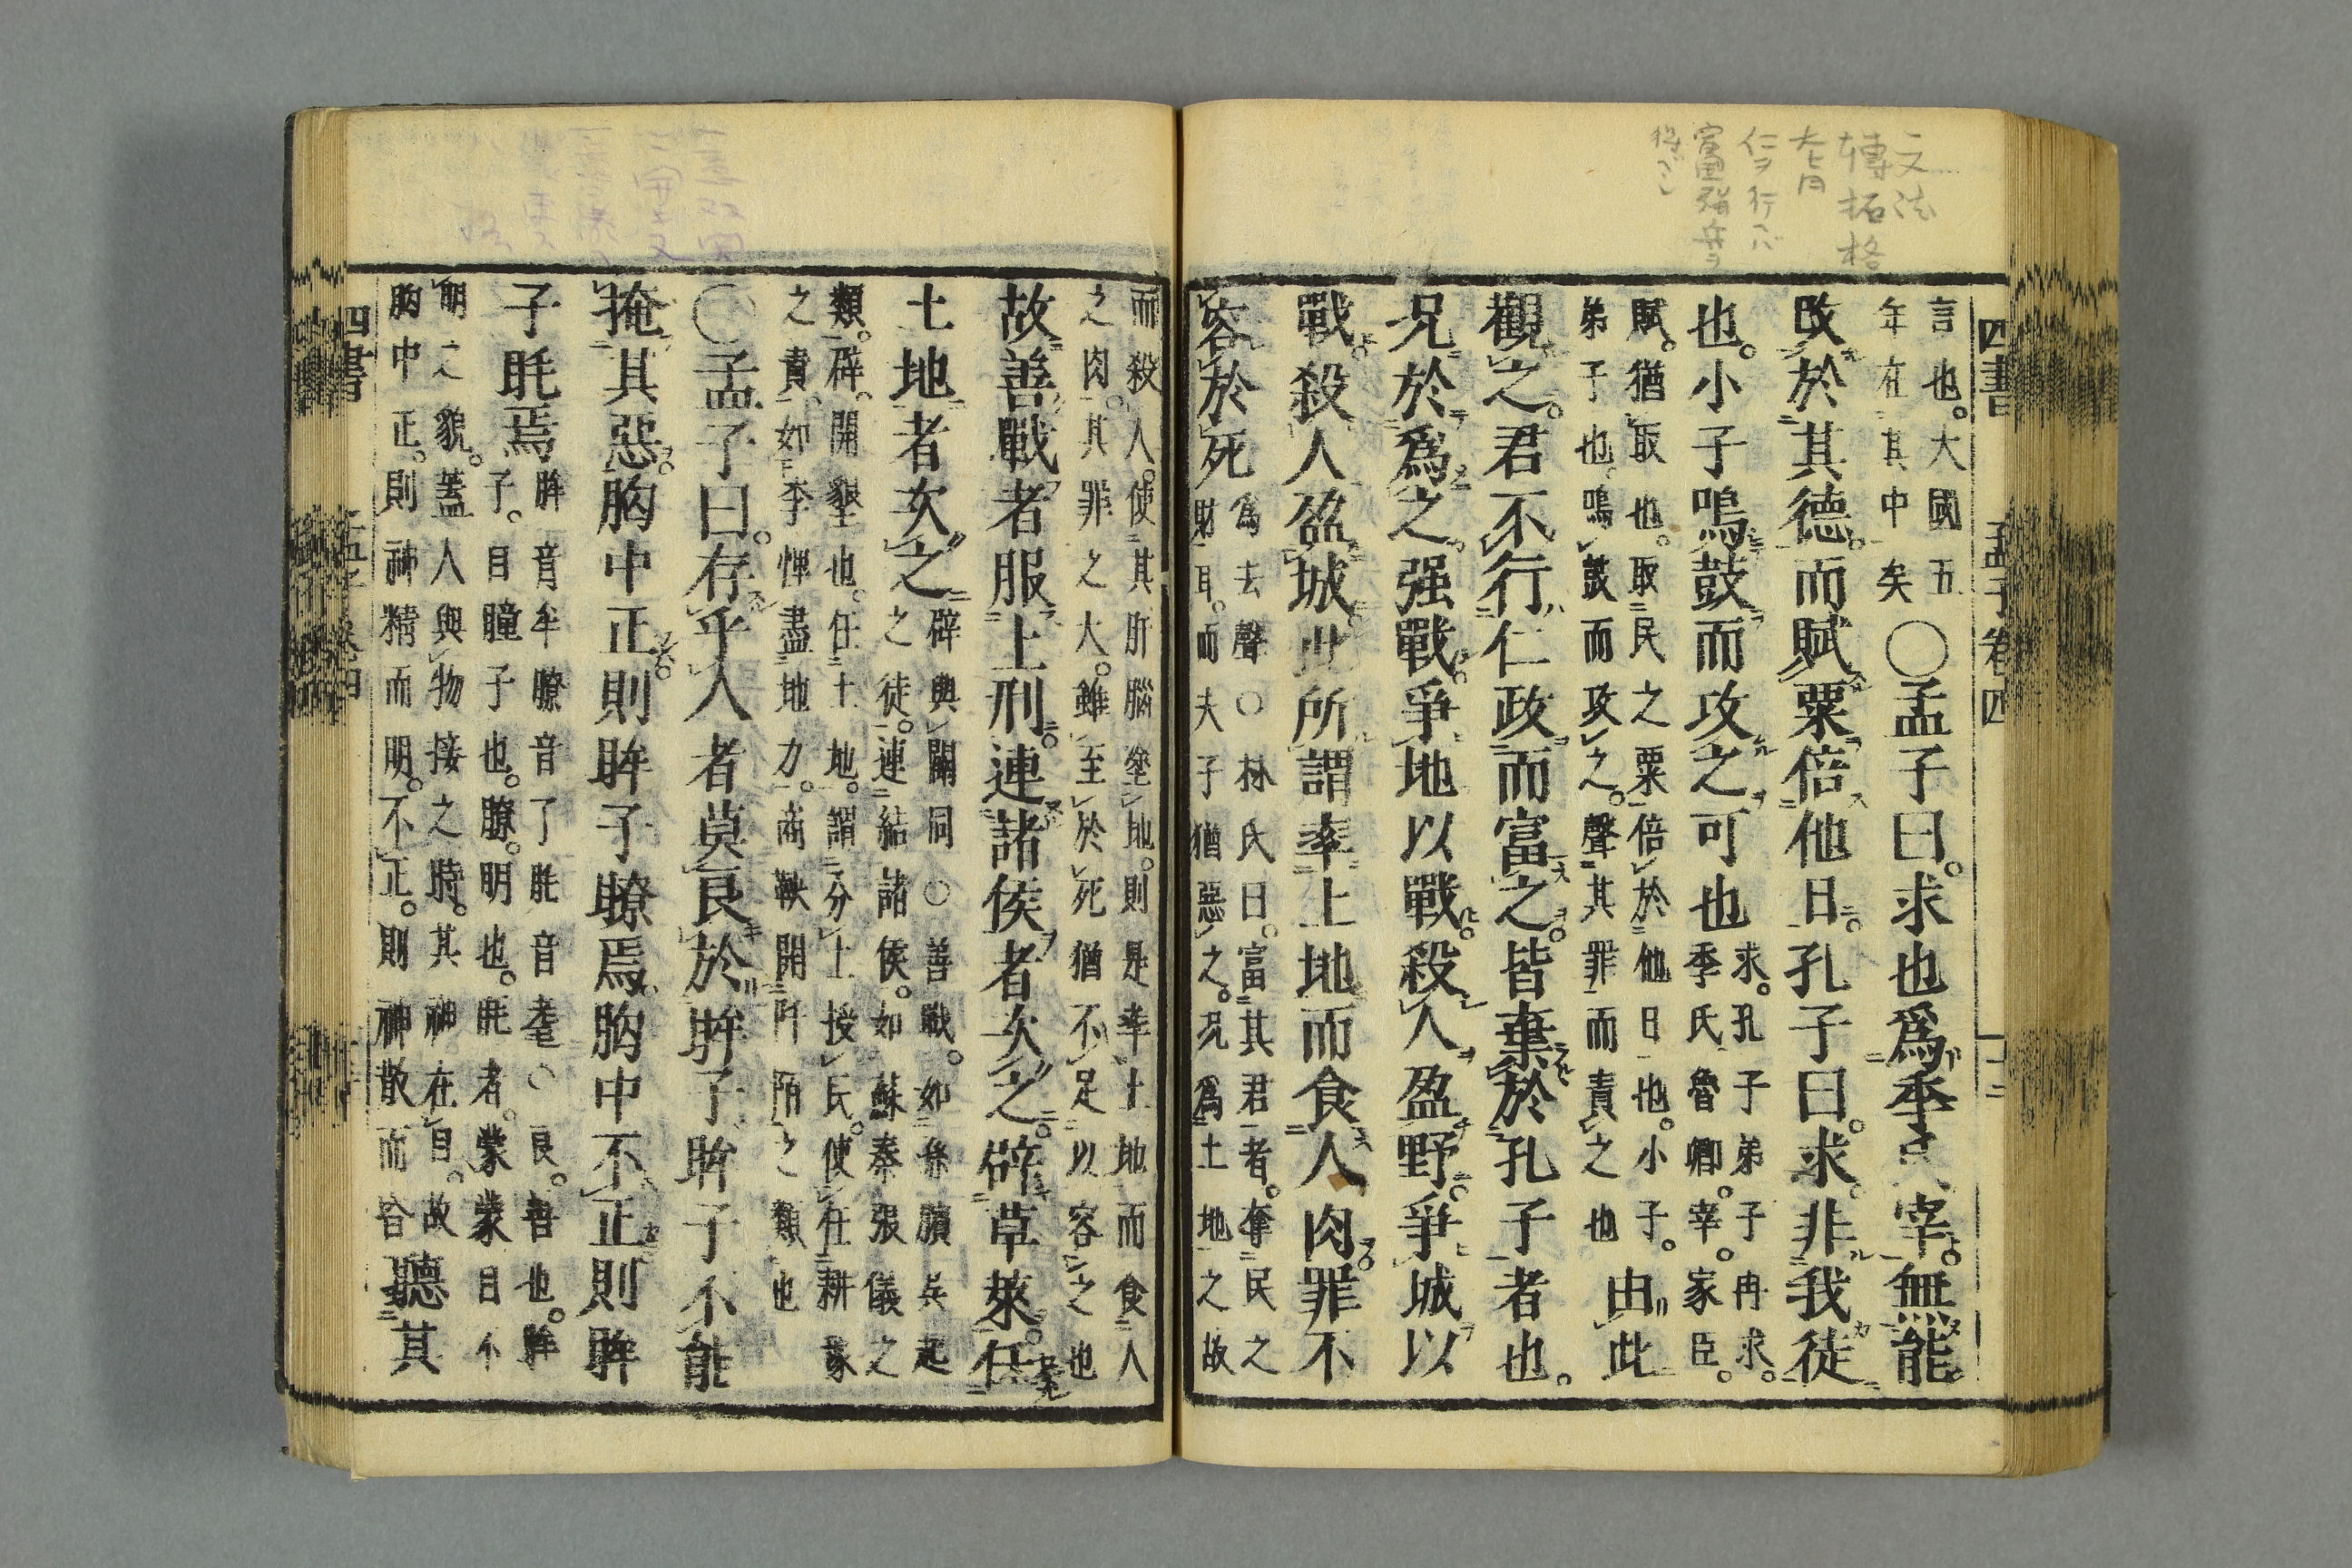 文法
轉拓格
大旨
仁ヲ行ヘバ
富國強兵ヲ
四書 孟子卷四 十二
言也。大國五
年在其中矣
○孟子曰。求也爲季氏宰。無能
改於其德。而賦粟倍他日。孔子曰。求。非我徒
也。小子鳴鼓而攻之可也
求。孔子弟子冉求。
季氏魯卿。宰。家臣。
賦。猶取也。取民之粟倍於他日也。小子。
弟子也。鳴鼓而攻之。聲其罪而責之也
由此
觀之。君不行仁政而富之。皆棄於孔子者也。
况於爲之强戰。爭地以戰。殺人盈野。爭城以
戰。殺人盈城。此所謂率土地而食人肉。罪不
容於死
爲去聲○林氏曰。富其君者。奪民之
財耳。而夫子猶惡之。况爲土地之故
而殺人。使其肝腦塗地。則是率土地而食人
之肉。其罪之大。雖至於死猶不足以容之也
故善戰者服上刑。連諸侯者次之。辟草萊。任
土地者次之
辟與闢同○善戰。如孫臏吳起
之徒。連結諸侯。如蘇秦張儀之
類。辟。開墾也。任土地。謂分土授民。使任耕稼
之責。如李悝盡地力。商鞅開阡陌之類也
○孟子曰。存乎人者莫良於眸子。眸子不能
掩其惡。胸中正。則眸子瞭焉。胸中不正。則眸
子眊焉
眸音牟瞭音了眊音耄○良。善也。眸
子。目瞳子也。瞭。明也。眊者。蒙蒙目不
明之貌。蓋人與物接之時。其神在目。故
胸中正。則神精而明。不正。則神散而昏
聽其
四書